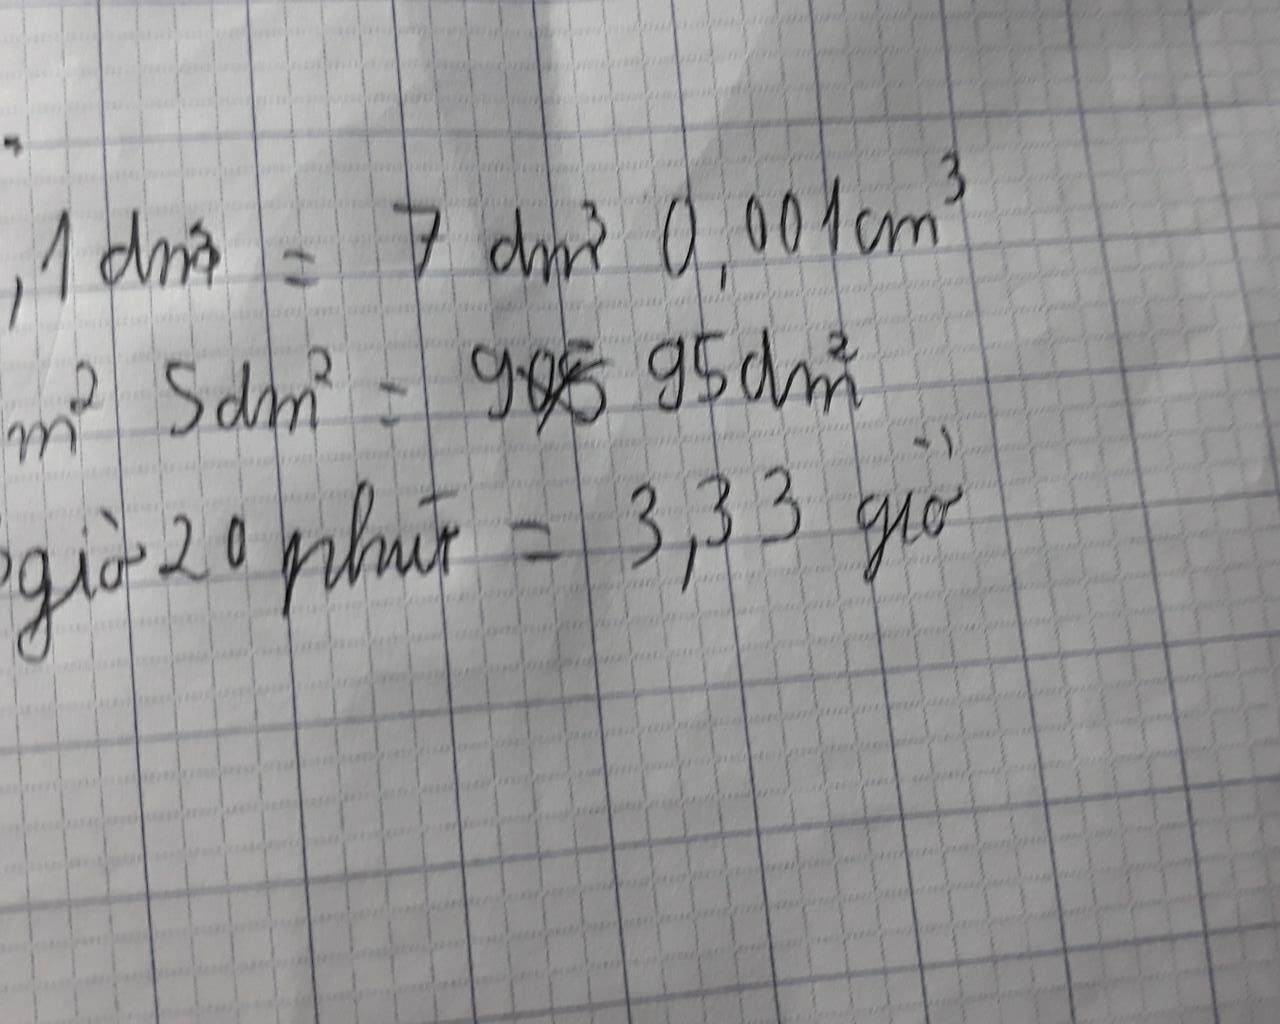 ,1 dm³ = 7 dm³ 0,001cm³
m² 5dm² = 95dm²
giờ 20 phút = 3,33 giờ